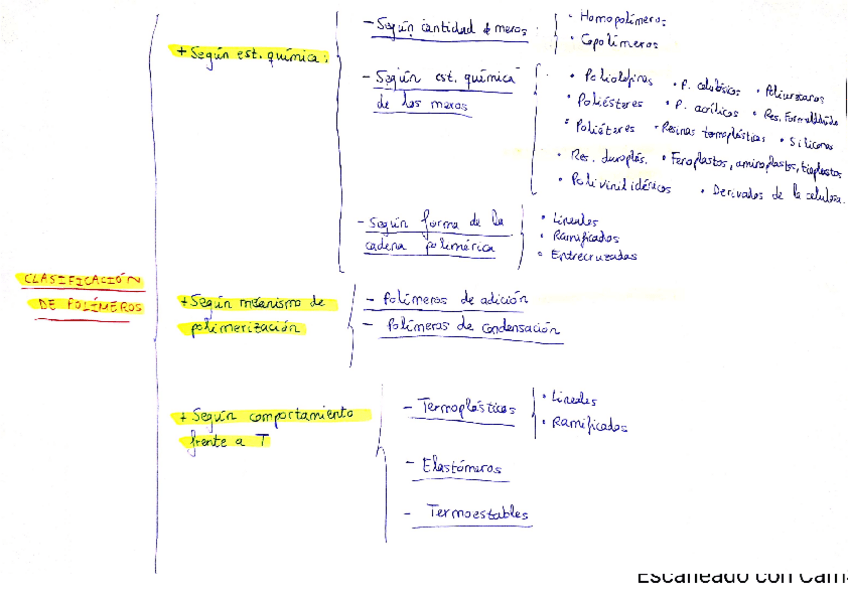 CLASIFICACIÓN
DE POLÍMEROS
+ Según est. química:
- Según cantidad de meros
• Homopolímeros
• Copolímeros
- Según est. química
de los meros
• Poliolefinas • P. celulósicos • Poliuretanos
• Poliésteres • P. acrílicos • Res. Formaldehído
• Poliéteres • Resinas termoplásticas • Siliconas
• Res. duroplás. • Fenoplastos, aminoplastos, tioplastos
• Polivinilidénicos • Derivados de la celulosa.
- Según forma de la
cadena polimérica
• Lineales
• Ramificados
• Entrecruzados
+ Según mecanismo de
polimerización
- Polímeros de adición
- Polímeros de condensación
+ Según comportamiento
frente a T
- Termoplásticos
• Lineales
• Ramificados
- Elastómeros
- Termoestables
Escaneado con Cam